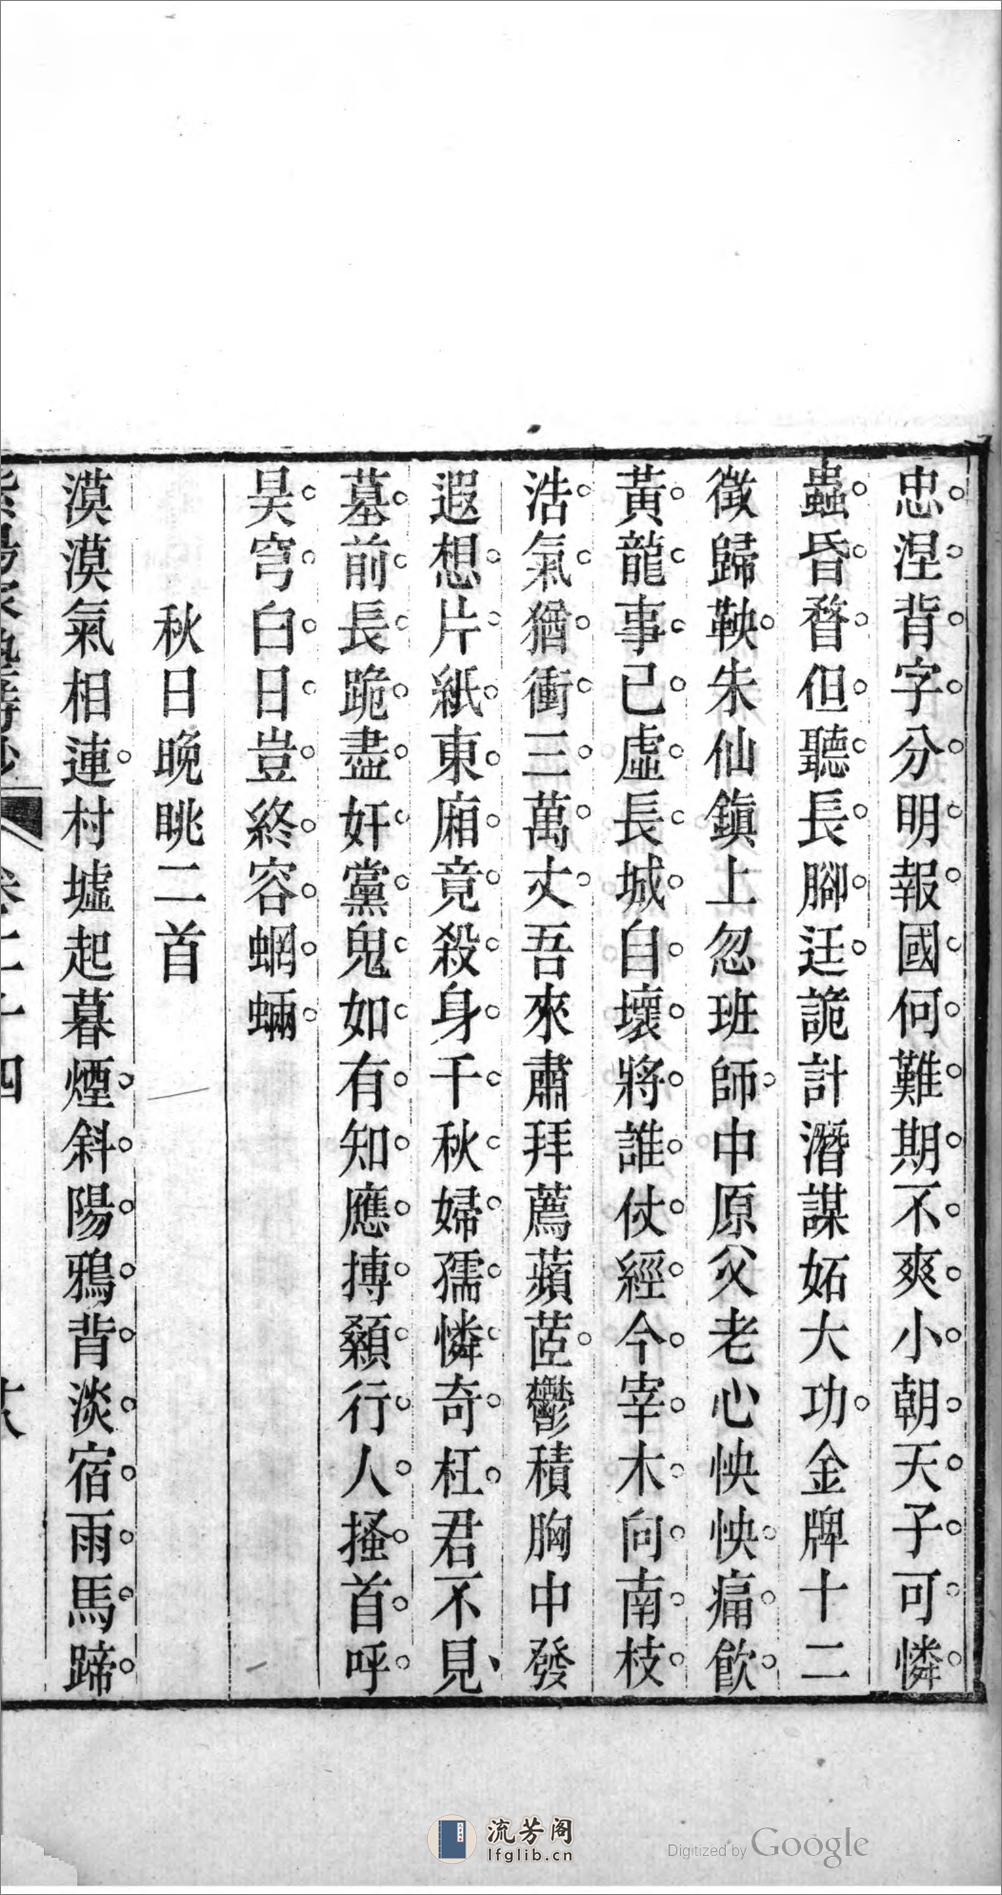 忠涅背字分明報國何難期不爽小朝天子可憐
蟲昏瞀但聽長腳迋詭計潛謀妬大功金牌十二
徵歸鞅朱仙鎮上忽班師中原父老心怏怏痛飲
黃龍事已虛長城自壞將誰仗經今宰木向南枝
浩氣猶衝三萬丈吾來肅拜薦蘋茝鬱積胸中發
遐想片紙東廂竟殺身千秋婦孺憐奇枉君不見
墓前長跪盡奸黨鬼如有知應搏顙行人搔首呼
昊穹白日豈終容蝄蜽
秋日晚眺二首
漠漠氣相連村墟起暮煙斜陽鴉背淡宿雨馬蹄
卷二十四
十八
流芳阁
lfglib.cn
Digitized by Google